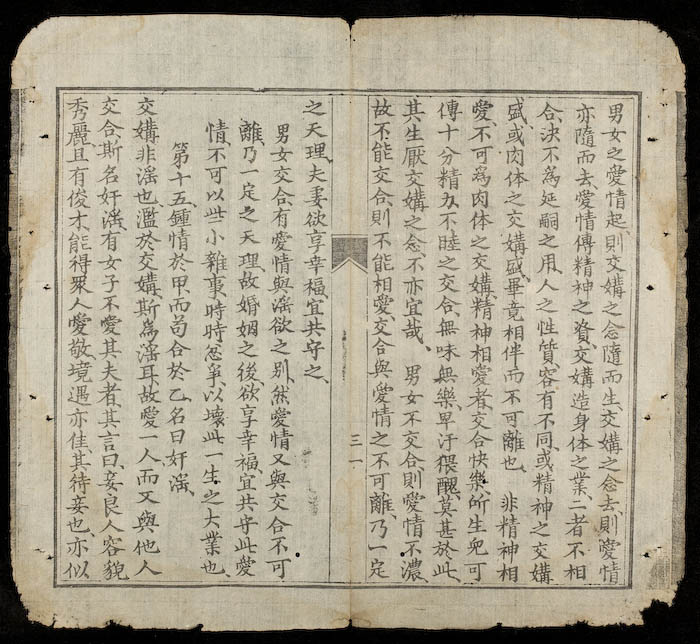 男女之愛情起、則交媾之念隨而生、交媾之念去、則愛情
亦隨而去、愛情傳精神之資、交媾造身体之業、二者不相
合、決不為延嗣之用、人之性質容有不同、或精神之交媾
盛、或肉体之交媾盛、畢竟相伴而不可離也、 非精神相
愛、不可為肉体之交媾、精神相愛者、交合快樂、所生兒可
傳十分精力、不睦之交合、無味無樂、卑汙猥醜、莫甚於此、
其生厭交媾之念、不亦宜哉、 男女不交合、則愛情不濃、
故不能交合、則不能相愛、交合與愛情之不可離、乃一定
三一
之天理、夫妻欲享幸福、宜共守之、
男女交合、有愛情與淫欲之別、然愛情又與交合不可
離、乃一定之天理、故婚姻之後、欲享幸福、宜共守此愛
情、不可以些小雜事、時時忿爭、以壞此一生之大業也、
第十五、鍾情於甲、而苟合於乙、名曰奸淫、
交媾非淫也、濫於交媾、斯為淫耳、故愛一人、而又與他人
交合、斯名奸淫、有女子不愛其夫者、其言曰、妾良人容貌
秀麗、且有俊才、能得眾人愛敬、境遇亦佳、其待妾也、亦似